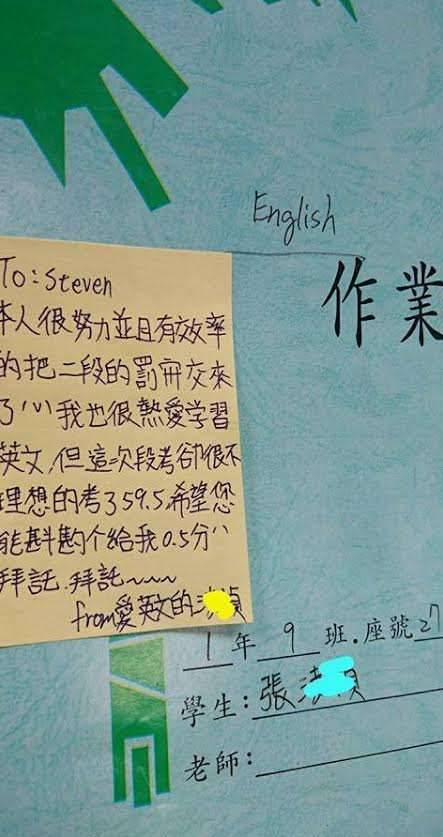 English
作業
To: Steven
本人很努力並且有效率
的把二段的罰冊交來
了我也很熱愛学習
英文,但這次段考卻很不
理想的考了59.5,希望您
能斟酌个給我0.5分
拜託.拜託~~~
from愛英文的
1年9班.座號27
學生:張
老師: